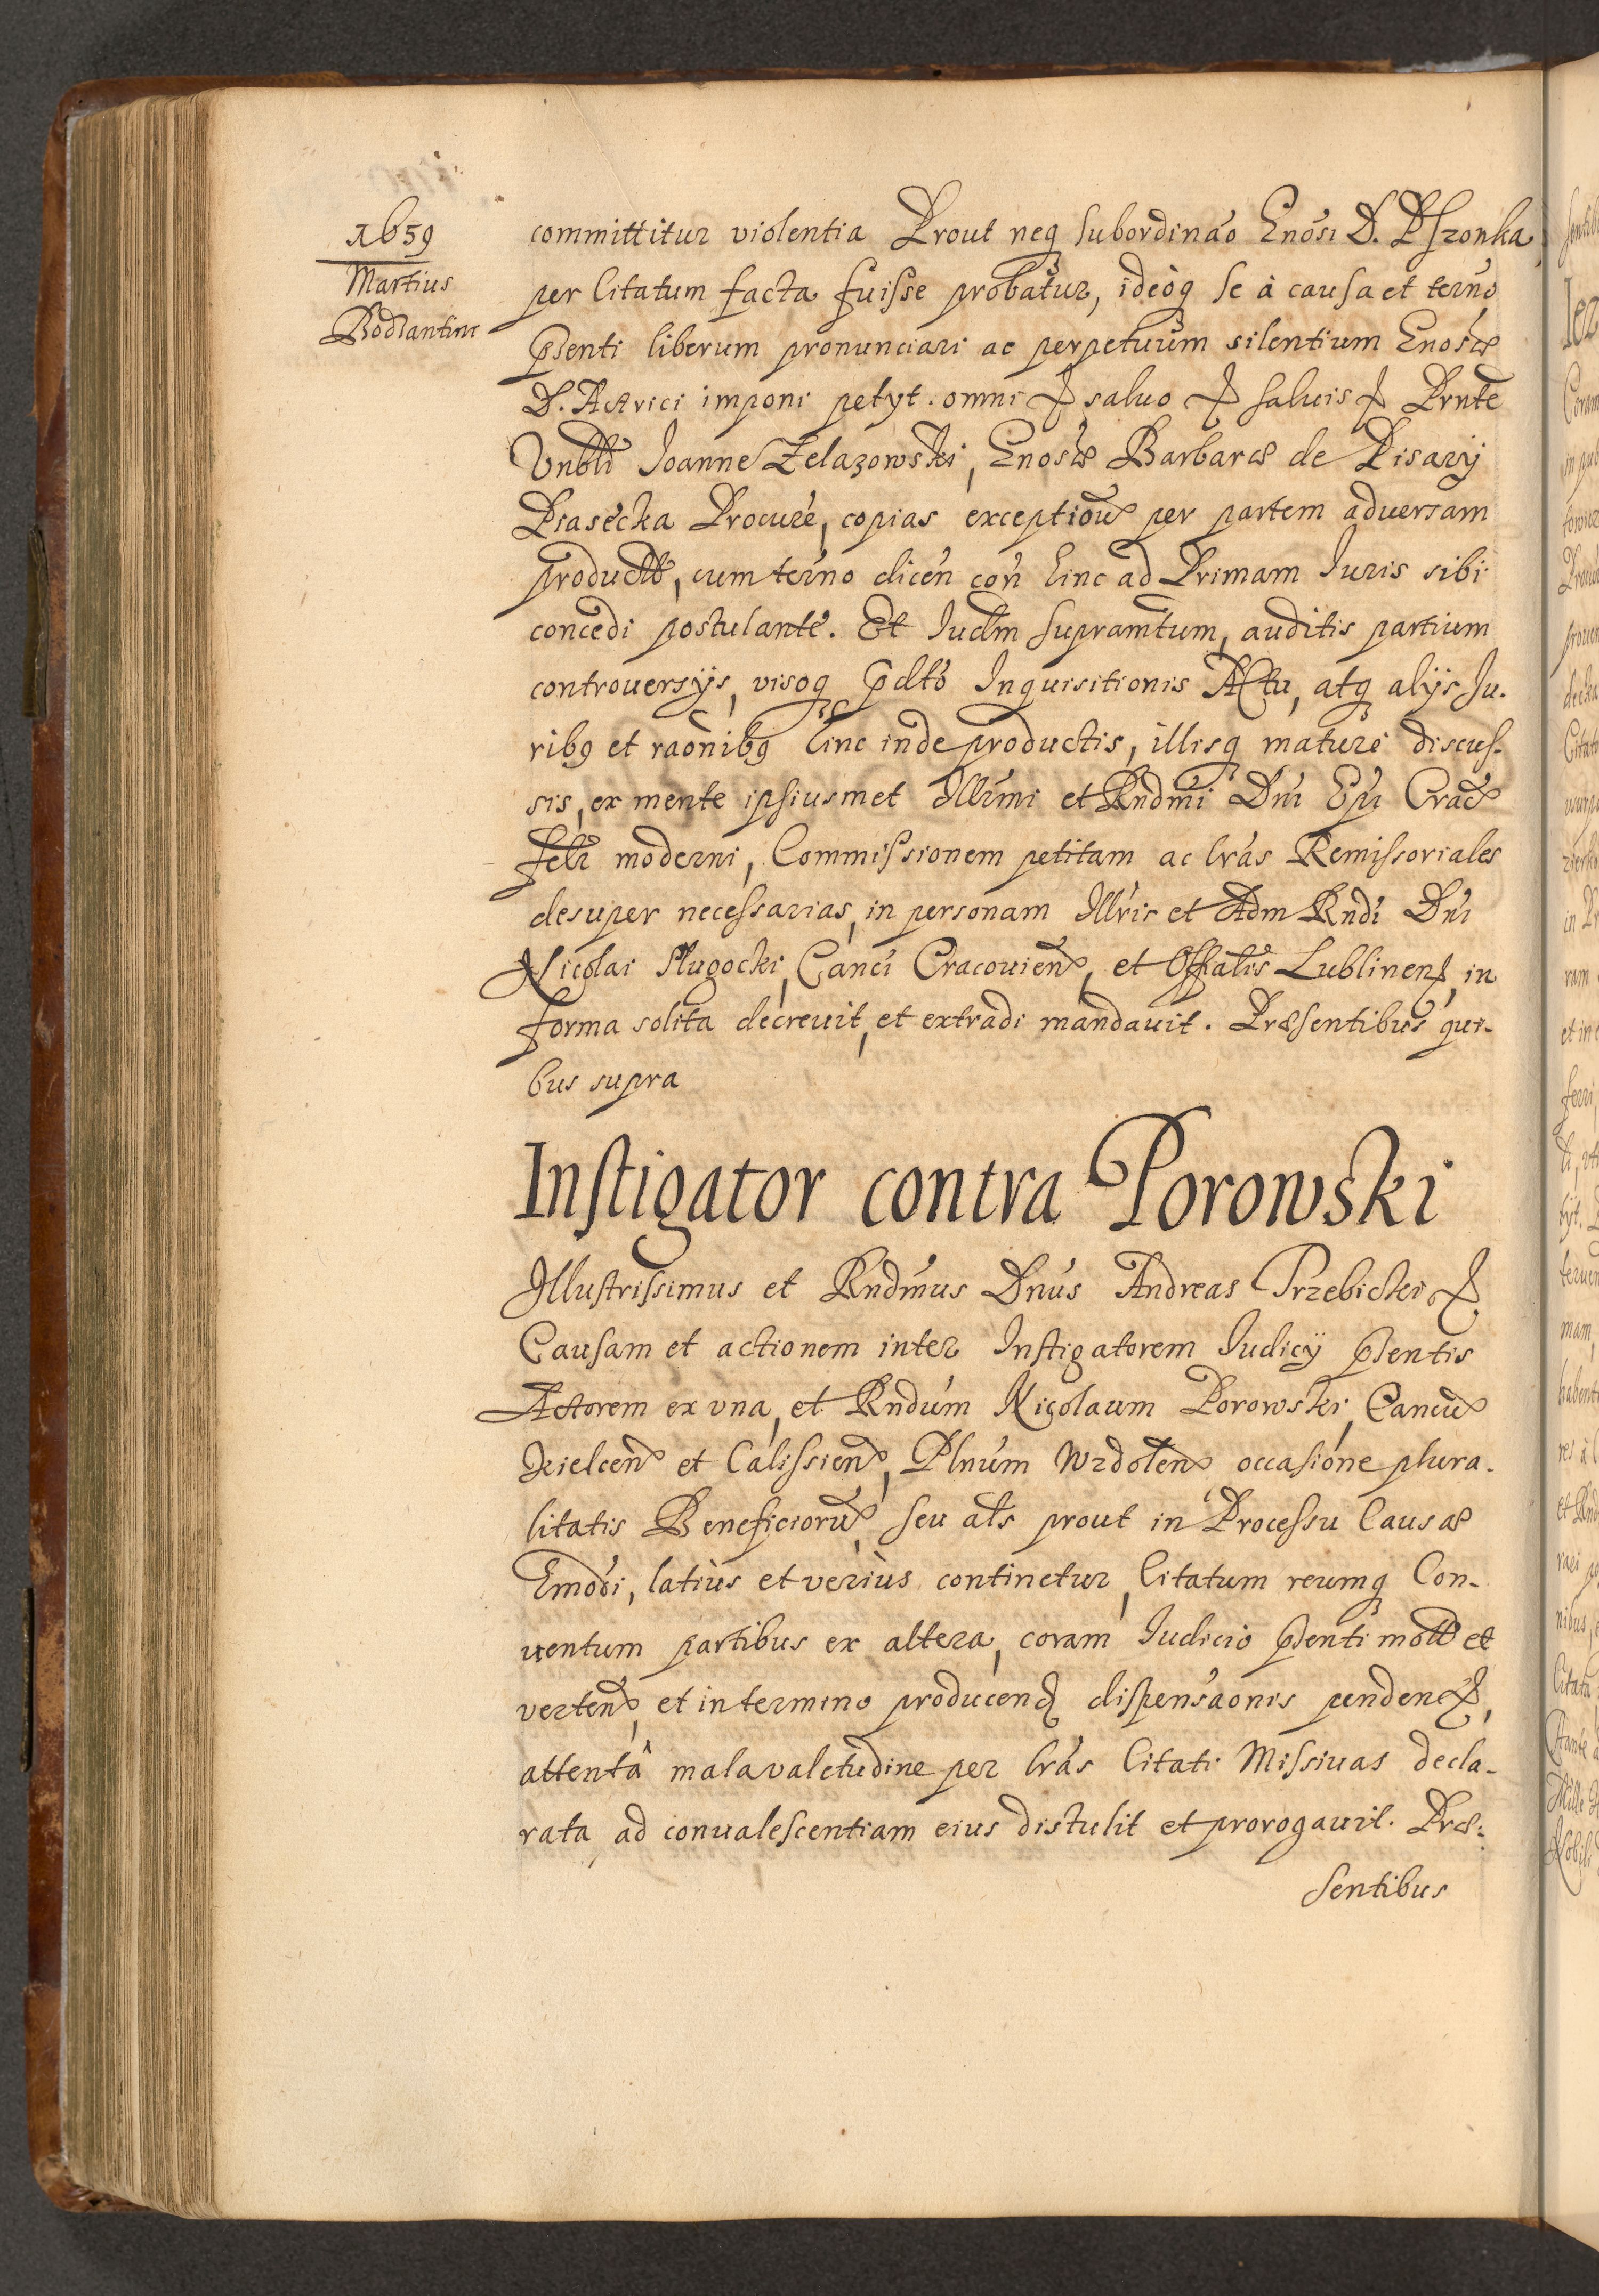 1659
Martius
Bodzantini
committitur violentia Prout neq subordinao Gnosi D. Pszonka
per Citatum facta fuisse probatur, ideoq se à causa et terno
pñsenti liberum pronunciari ac perpetuum silentium Gnosæ
D. Actrici imponi petyt. omni & saluo & saluis & Pnte
Vnbli Joanne Zelazowski, Gnosæ Barbaræ de Pisary
Piasecka Procure, copias exception per partem aduersam
product, cum terno dicen con hinc ad Primam Iuris sibi
concedi postulante. Et Iudm supramtum, auditis partium
controuersijs, visoq pdto Inquisitionis Actu, atq alijs Iu-
ribq et raonibq hinc inde productis, illisq mature discus-
sis, ex mente ipsiusmet Illrmi et Rndmi Dni Epi Crac
felr moderni, Commissionem petitam ac lras Remissoriales
desuper necessarias, in personam Illris et Adm Rndi Dni
Nicolai Slugocki, Canci Cracouien, et Offalis Lublinen, in
forma solita decreuit, et extradi mandauit. Præsentibus qui-
bus supra
Instigator contra Porowski
Illustrissimus et Rndmus Dnus Andreas Trzebicki &
Causam et actionem inter Instigatorem Iudicij pñsentis
Actorem ex vna, et Rndum Nicolaum Porowski, Cancum
Kielcen et Calissien, Plnum Wzdolen occasione plura-
litatis Beneficioru, seu als prout in Processu Causæ
Emodi, latius et verius continetur, Citatum reumq Con-
uentum partibus ex altera, coram Iudicio pñsenti mot et
verten, et in termino producend dispensaonis penden,
attentâ mala valetudine per lras Citati Missiuas decla-
rata ad conualescentiam eius distulit et prorogauit. Præ-
sentibus